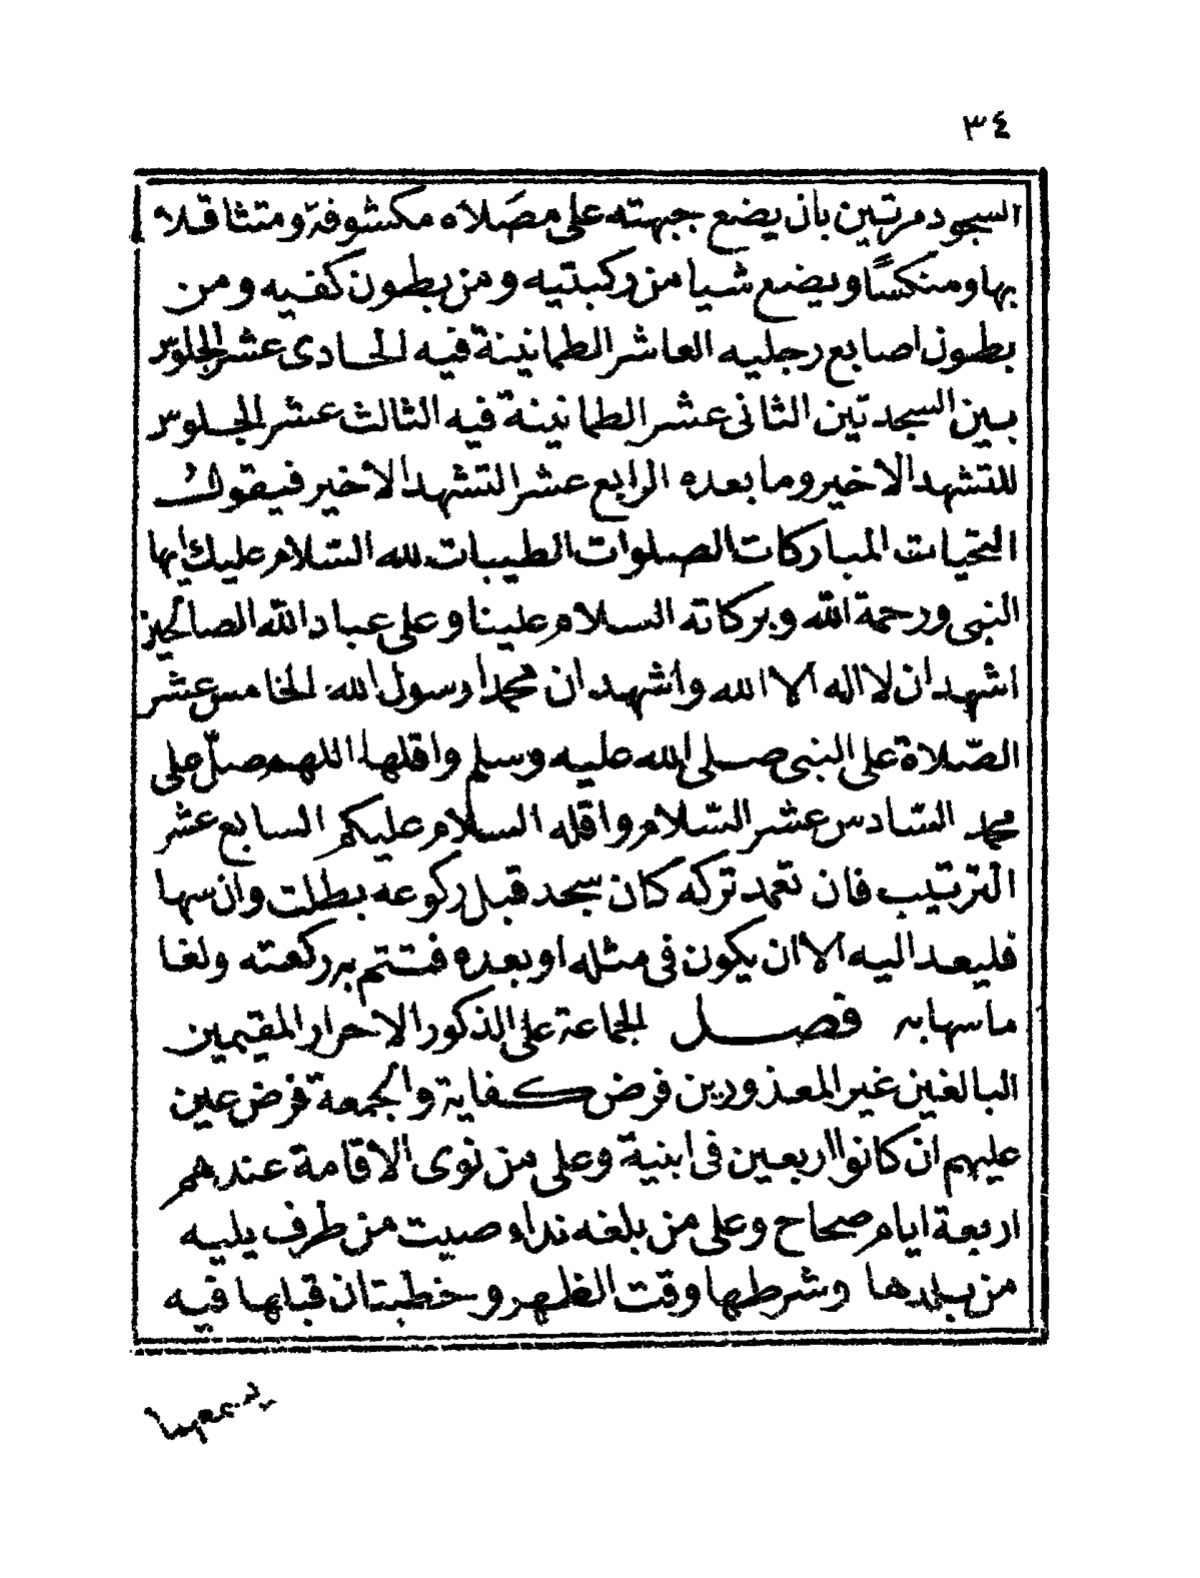 ٣٤
السجود مرتين بان يضع جبهته على مصَلاه مكشوفة ومتثاقلا
بها ومنكسًا ويضع شيا من ركبتيه ومن بطون كفيه ومن
بطون اصابع رجليه العاشر الطمانينة فيه الحادى عشر الجلوس
بين السجدتين الثانى عشر الطمانينة فيه الثالث عشر الجلوس
للتشهد الاخير وما بعده الرابع عشر التشهد الاخير فيقول
التحيات المباركات الصلوات الطيبات لله السّلام عليك ايها
النبى ورحمة الله وبركاته السلام علينا وعلى عباد الله الصالحين
اشهد ان لا اله الا الله واشهد ان محمدا رسول الله الخامس عشر
الصّلاة على النبى صلى الله عليه وسلم واقلها اللهم صلّ على
محمد السّادس عشر السّلام واقله السلام عليكم السابع عشر
الترتيب فان تعمد تركه كان سجد قبل ركوعه بطلت وان سها
فليعد اليه الا ان يكون فى مثله او بعده فتتم به ركعته ولغا
ما سها به فصل الجماعة على الذكور الاحرار المقيمين
البالغين غير المعذورين فرض كفاية والجمعة فرض عين
عليهم ان كانوا اربعين فى ابنية وعلى من نوى الاقامة عندهم
اربعة ايام صحاح وعلى من بلغه نداء صيت من طرف يليه
من بلدها وشرطها وقت الظهر وخطبتان قبلها فيه